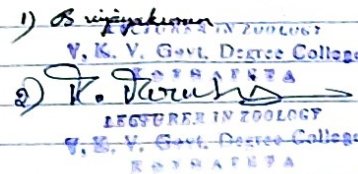 1) B Vijayakumari
LECTURER IN ZOOLOGY
V. K. V. Govt. Degree College
KOTHAPETA
2) K.
LECTURER IN ZOOLOGY
V. K. V. Govt. Degree College
KOTHAPETA